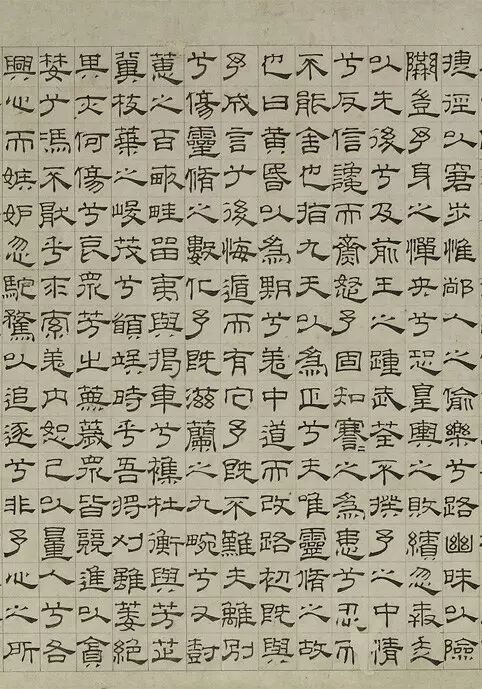 捷徑以窘步惟䣊人之偷樂兮路幽昧以險
隘豈予身之憚央兮恐皇輿之敗績忽奔走
以先後兮及前王之踵武荃不揆予之中情
兮反信讒而齌怒予固知謇〻之為患兮忍而
不能舍也指九天以為正兮夫唯靈脩之故
也曰黃昏以為期兮羌中道而改路初既與
予成言兮後悔遁而有它予既不難夫離別
兮傷靈脩之數化予既滋蘭之九畹兮又樹
蕙之百畝畦留夷與揭車兮襍杜衡與芳芷
冀枝葉之峻茂兮願竢時乎吾將刈雖萎絕
其亦何傷兮哀眾芳之蕪薉眾皆競進以貪
婪兮馮不猒乎求索羌內恕己以量人兮各
興心而嫉妒忽馳騖以追逐兮非予心之所